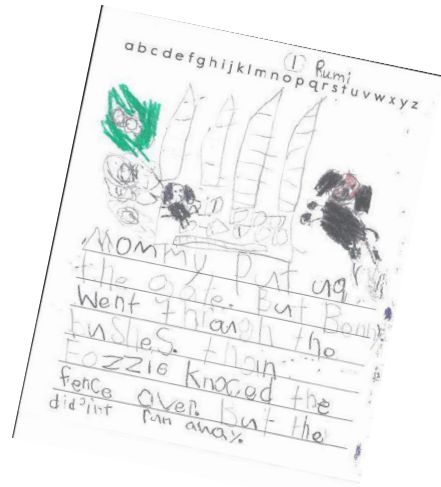 abcdefghijklmnopqrstuvwxyz
1 Rumi
Mommy Put up
the gate. But
Went through the
bushes. than
Fozzie knoced the
fence over. but the
did'int run away.